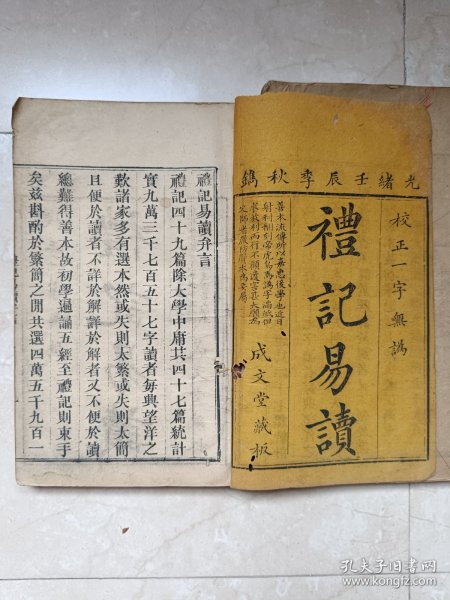 光緒壬辰季秋鐫
校正一字無譌
禮記易讀
成文堂藏板
善本流傳所以嘉惠後學也近日
射利
禮記易讀弁言
禮記四十九篇除大學中庸共四十七篇統計
實九萬三千七百五十七字讀者每興望洋之
歎諸家多有選本然或失則太繁或失則太簡
且便於讀者不詳於解詳於解者又不便於讀
總難得善本故初學遍誦五經至禮記則束手
矣茲斟酌於繁簡之間共選四萬五千九百一
孔夫子旧书网
www.kongfz.com